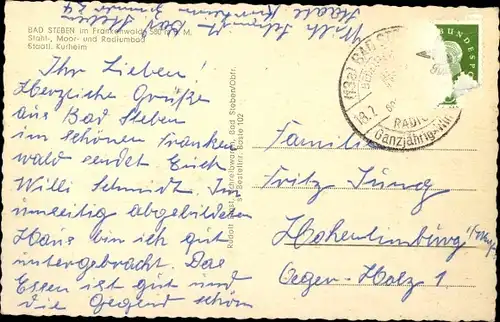 BAD STEBEN im Frankenwald, 580 m ü. M.
Stahl-, Moor- und Radiumbad
Staatl. Kurheim
Ihr Lieben!
Herzliche Grüße
aus Bad Steben
im schönen Franken
wald sendet Euch
Willi Schmidt. Im
umseitig abgebildeten
Haus bin ich gut
untergebracht. Das
Essen ist gut und
die Gegend schön
Willi Schmidt Bad Steben
Staatl. Kurheim
Zimmer 24
Rudolf Schreibwaren, Bad Steben/Obfr.
Bestellnr. Basse 102
(13a) BAD STEBEN
18.7.
RADIUM
Ganzjährig
BUNDESP
Familie
Fritz Jung
Hohenlimburg i/Westf.
Oeger-Holz 1